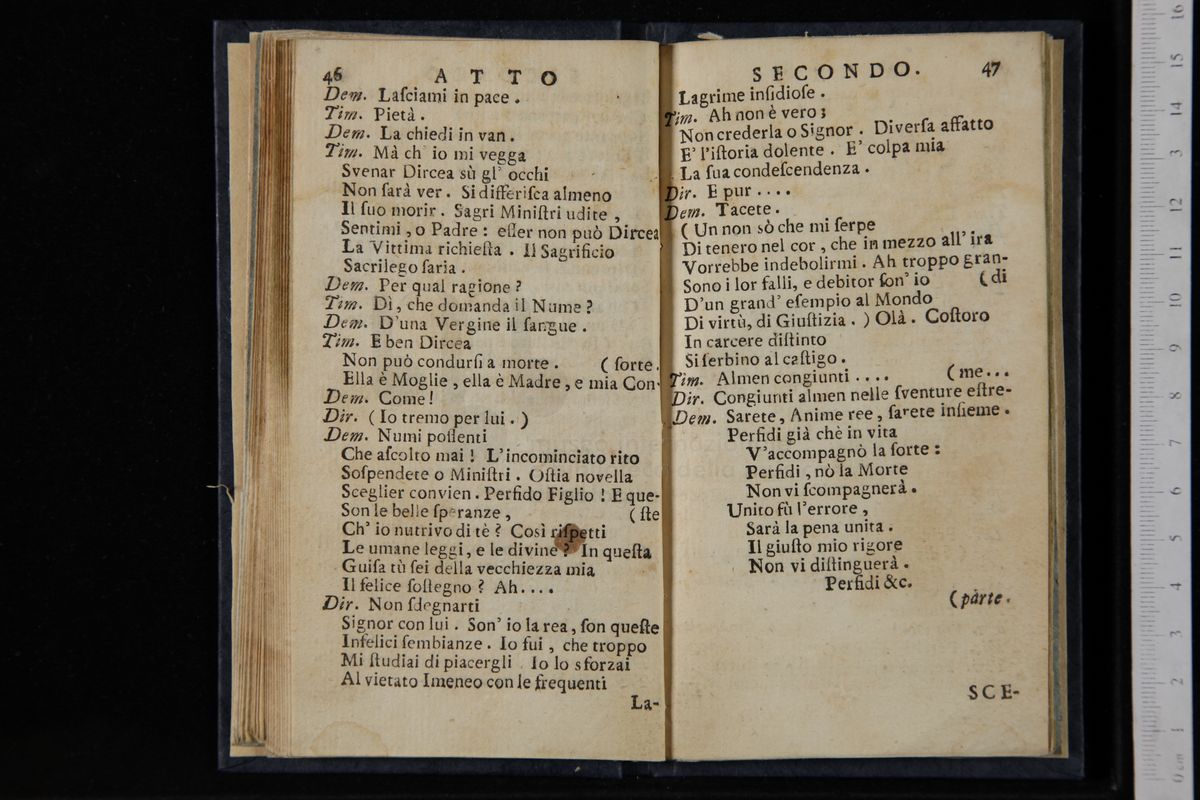 46 ATTO
Dem. Laſciami in pace .
Tim. Pietà .
Dem. La chiedi in van .
Tim. Mà ch' io mi vegga
Svenar Dircea sù gl' occhi
Non ſarà ver . Si differiſca almeno
Il ſuo morir . Sagri Miniſtri udite ,
Sentimi , o Padre : eſſer non può Dircea
La Vittima richieſta . Il Sagrificio
Sacrilego ſaria .
Dem. Per qual ragione ?
Tim. Dì , che domanda il Nume ?
Dem. D'una Vergine il ſangue .
Tim. E ben Dircea
Non può condurſi a morte . ( ſorte .
Ella è Moglie , ella è Madre , e mia Con-
Dem. Come !
Dir. ( Io tremo per lui . )
Dem. Numi poſſenti
Che aſcolto mai ! L'incominciato rito
Soſpendete o Miniſtri . Oſtia novella
Sceglier convien . Perfido Figlio ! E que-
Son le belle ſperanze , ( ſte
Ch' io nutrivo di tè ? Così riſpetti
Le umane leggi , e le divine ? In queſta
Guiſa tù ſei della vecchiezza mia
Il felice ſoſtegno ? Ah ....
Dir. Non ſdegnarti
Signor con lui . Son' io la rea , ſon queſte
Infelici ſembianze . Io fui , che troppo
Mi ſtudiai di piacergli . Io lo sforzai
Al vietato Imeneo con le frequenti
La-
SECONDO. 47
Lagrime inſidioſe .
Tim. Ah non è vero ;
Non crederla o Signor . Diverſa affatto
E' l'iſtoria dolente . E' colpa mia
La ſua condeſcendenza .
Dir. E pur ....
Dem. Tacete .
( Un non sò che mi ſerpe
Di tenero nel cor , che in mezzo all' ira
Vorrebbe indebolirmi . Ah troppo gran-
Sono i lor falli , e debitor ſon' io ( di
D'un grand' eſempio al Mondo
Di virtù , di Giuſtizia . ) Olà . Coſtoro
In carcere diſtinto
Si ſerbino al caſtigo .
Tim. Almen congiunti .... ( me ...
Dir. Congiunti almen nelle ſventure eſtre-
Dem. Sarete , Anime ree , ſarete inſieme .
Perfidi già chè in vita
V'accompagnò la ſorte :
Perfidi , nò la Morte
Non vi ſcompagnerà .
Unito fù l'errore ,
Sarà la pena unita .
Il giuſto mio rigore
Non vi diſtinguerà .
Perfidi &c.
( parte .
SCE-
16
15
14
13
12
11
10
9
8
7
6
5
4
3
2
1
0 cm